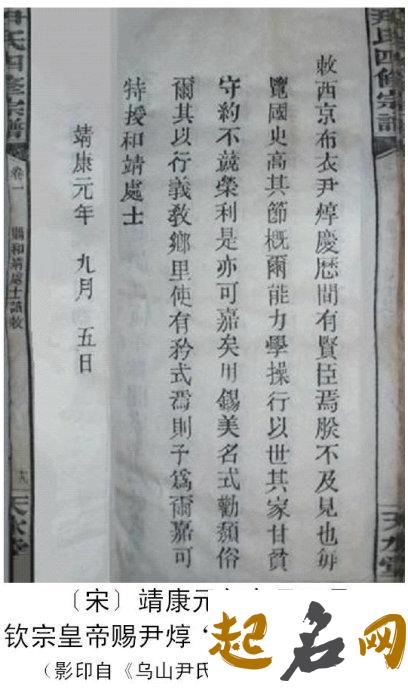 尹氏四修宗譜
敕西京布衣尹焞慶歷間有賢臣焉朕不及見也每
覽國史高其節概爾能力學操行以世其家甘貧
守約不競榮利是亦可嘉矣用錫美名式勸頹俗
爾其以行義教鄉里使有矜式焉則予為爾嘉可
特授和靖處士
靖康元年 九月 五日
尹氏四修宗譜
卷一
賜和靖處士誥敕
十九
天水堂
〔宋〕靖康元
钦宗皇帝赐尹焞
（影印自《乌山尹氏
起名网